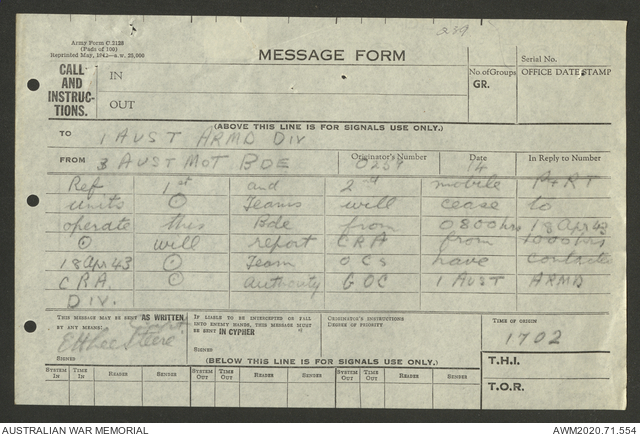 239
Army Form C 2128
(Pads of 100)
Reprinted May, 1942—a.w. 25,000
MESSAGE FORM
Serial No.
CALL AND INSTRUCTIONS.
IN
OUT
No. of Groups
GR.
OFFICE DATE STAMP
(ABOVE THIS LINE IS FOR SIGNALS USE ONLY.)
TO 1 AUST ARMD DIV
FROM 3 AUST MOT BDE
Originator's Number 0239
Date 14
In Reply to Number
Ref 1st and 2nd mobile P+RT
units ⊙ Teams will cease to
operate this Bde from 0800 hrs 18 Apr 43
⊙ will report CRA from 1000 hrs
18 Apr 43 ⊙ Team OCs have contacted
CRA. ⊙ authority GOC 1 AUST ARMD
DIV.
THIS MESSAGE MAY BE SENT AS WRITTEN
BY ANY MEANS.
SIGNED
IF LIABLE TO BE INTERCEPTED OR FALL
INTO ENEMY HANDS, THIS MESSAGE MUST
BE SENT IN CYPHER
SIGNED
ORIGINATOR'S INSTRUCTIONS
DEGREE OF PRIORITY
TIME OF ORIGIN
1702
T.H.I.
T.O.R.
(BELOW THIS LINE IS FOR SIGNALS USE ONLY.)
SYSTEM IN TIME IN READER SENDER SYSTEM OUT TIME OUT READER SENDER SYSTEM OUT TIME OUT READER SENDER
AUSTRALIAN WAR MEMORIAL
AWM2020.71.554